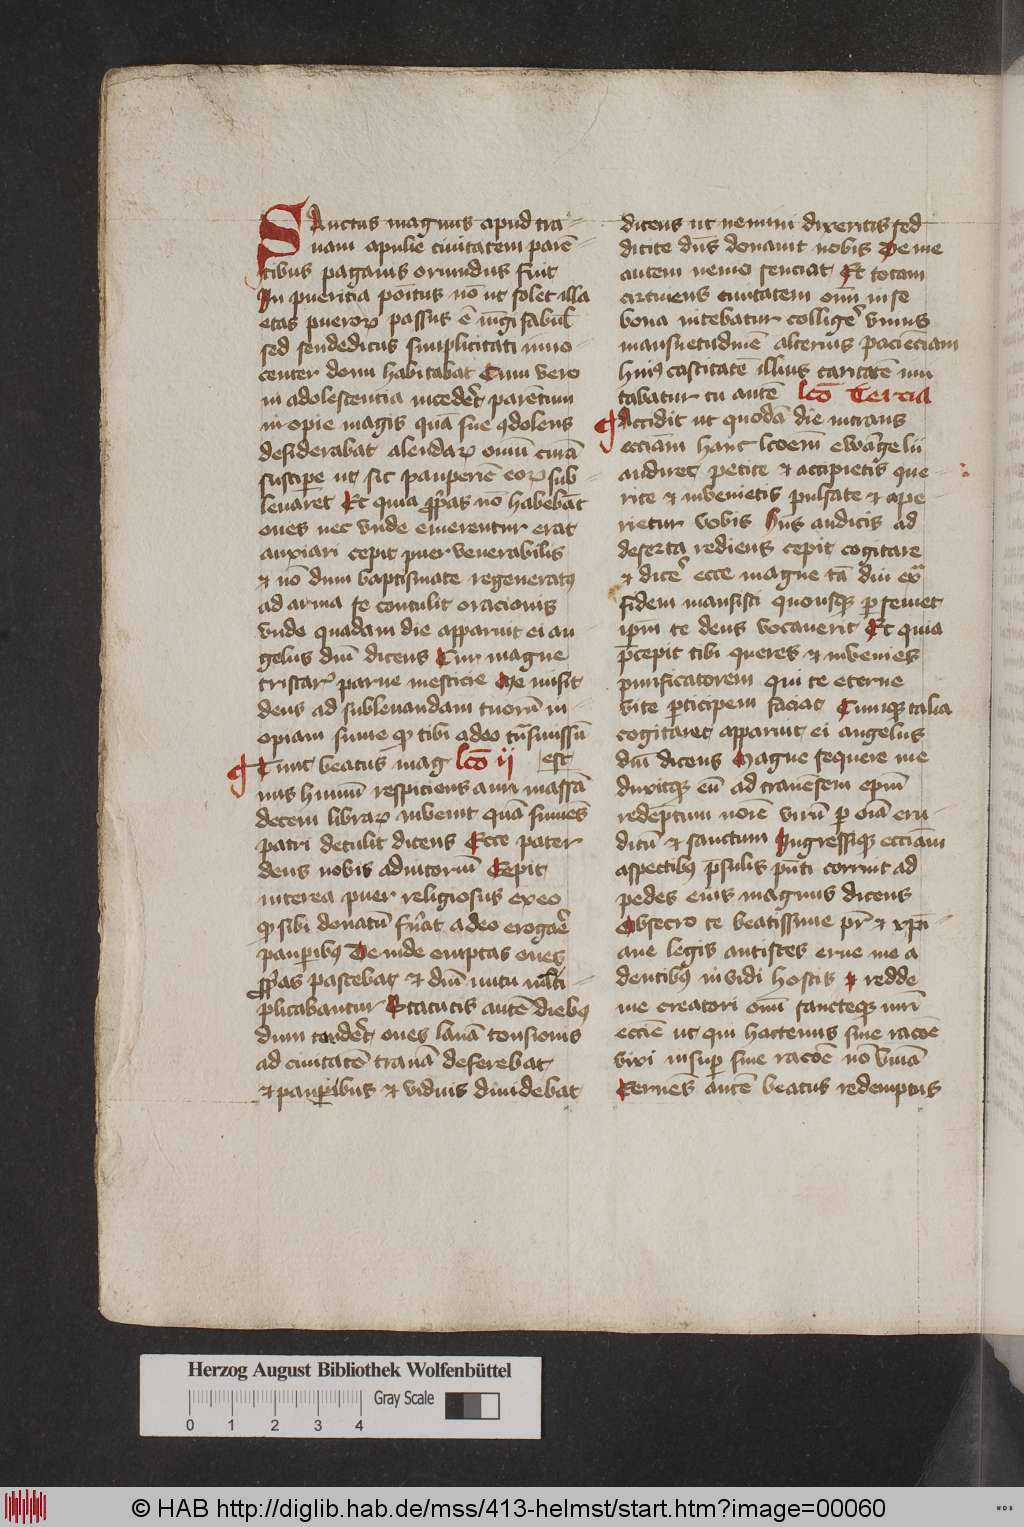 Sanctus magnus apud tra⸗
nam apulie ciuitatem parē⸗
tibus paganis oriundus fuit
In puericia poītus nō ut solet illa
etas pueroꝝ passus ē iūgi fabul̄
sed sendedicus simplicitati inno⸗
center domi habitabat Cum vero
in adolescentia incedēt parentum
inopie magis quā sue ꝯdolens
desiderabat alendaꝝ omū curā
suscipe ut sic pauperiē eoꝝ sub⸗
leuaret Et quia ꝓp̄as nō habebat
oues nec vnde emerentur erat
anxiari cepit puer venerabilis
⁊ nō dum baptismate regeneratꝰ
ad arma se contulit oracionis
vnde quadam die apparuit ei an⸗
gelus dnī dicens Cur magne
tristaꝝ parue mesticie Me misit
deus ad subleuandam tuorū in⸗
opiam sume qd tibi a deo tn̄smissū
est
Tunc beatus mag lcō ij
nus humū respiciens auri massā
decem libraꝝ inuenit quā sumēs
patri detulit dicens Ecce pater
deus nobis adiutoriū Cepit
interea puer religiosus ex eo
qd sibi donatū fuāt a deo erogaē
paupibꝰ Deinde emptas oues
ꝓp̄as pascebat ⁊ dnī nutu mlti⸗
plicabantur Statutis autē diebꝰ
dum tondēt oues lanā tonsionis
ad ciuitatē tranā deferebat
⁊ paupibus ⁊ viduis diuidebat
dicens ut nemini dixeritis sed
dicite dn̄s donauit nobis De me
autem nemo senciat Et totam
circuiens ciuitatem omī in se
bona nitebatur colligē vnius
mansuetudinē alterius pacienciam
huiꝰ castitatē illius caritatē imi
tabatur tu autē lcō Tercia
Accidit ut quodā die intrans
ecciam hanc lcoem ewāgelii
audiret petite ⁊ accipietis que⸗
rite ⁊ inuenietis pulsate ⁊ ape⸗
rietur vobis Hiis auditis ad
deserta rediens cepit cogitare
⁊ dicē ecce magne tā diu ex̄
fidem mansisti quousqꝫ ꝑ semet
ipm te deus vocauerit Et quia
p̄cepit tibi queres ⁊ inuenies
purificatorem qui te eterne
vite ꝑticipem faciat Cumqꝫ talia
cogitaret apparuit ei angelus
dnī dicens Magne sequere me
duxitqꝫ eū ad tranēsem epm̄
redemptum noīe virū ꝑ oīa eru⸗
ditū ⁊ sanctum Ingressiqꝫ ecciam
aspectibꝰ p̄sulis pn̄ti corruit ad
pedes eius magnus dicens
Obsecro te beatissime pr̄ ⁊ xp̄i⸗
ane legis antistes erue me a
dentibꝰ inuidi hostis ⁊ redde
me creatori omī sancteqꝫ mr̄i
eccīe ut qui hactenus sine racōe
vixi insuꝑ sine racōe nō viuā
Cernēs autē beatus redemptus
Herzog August Bibliothek Wolfenbüttel
Gray Scale
0 1 2 3 4
© HAB http://diglib.hab.de/mss/413-helmst/start.htm?image=00060